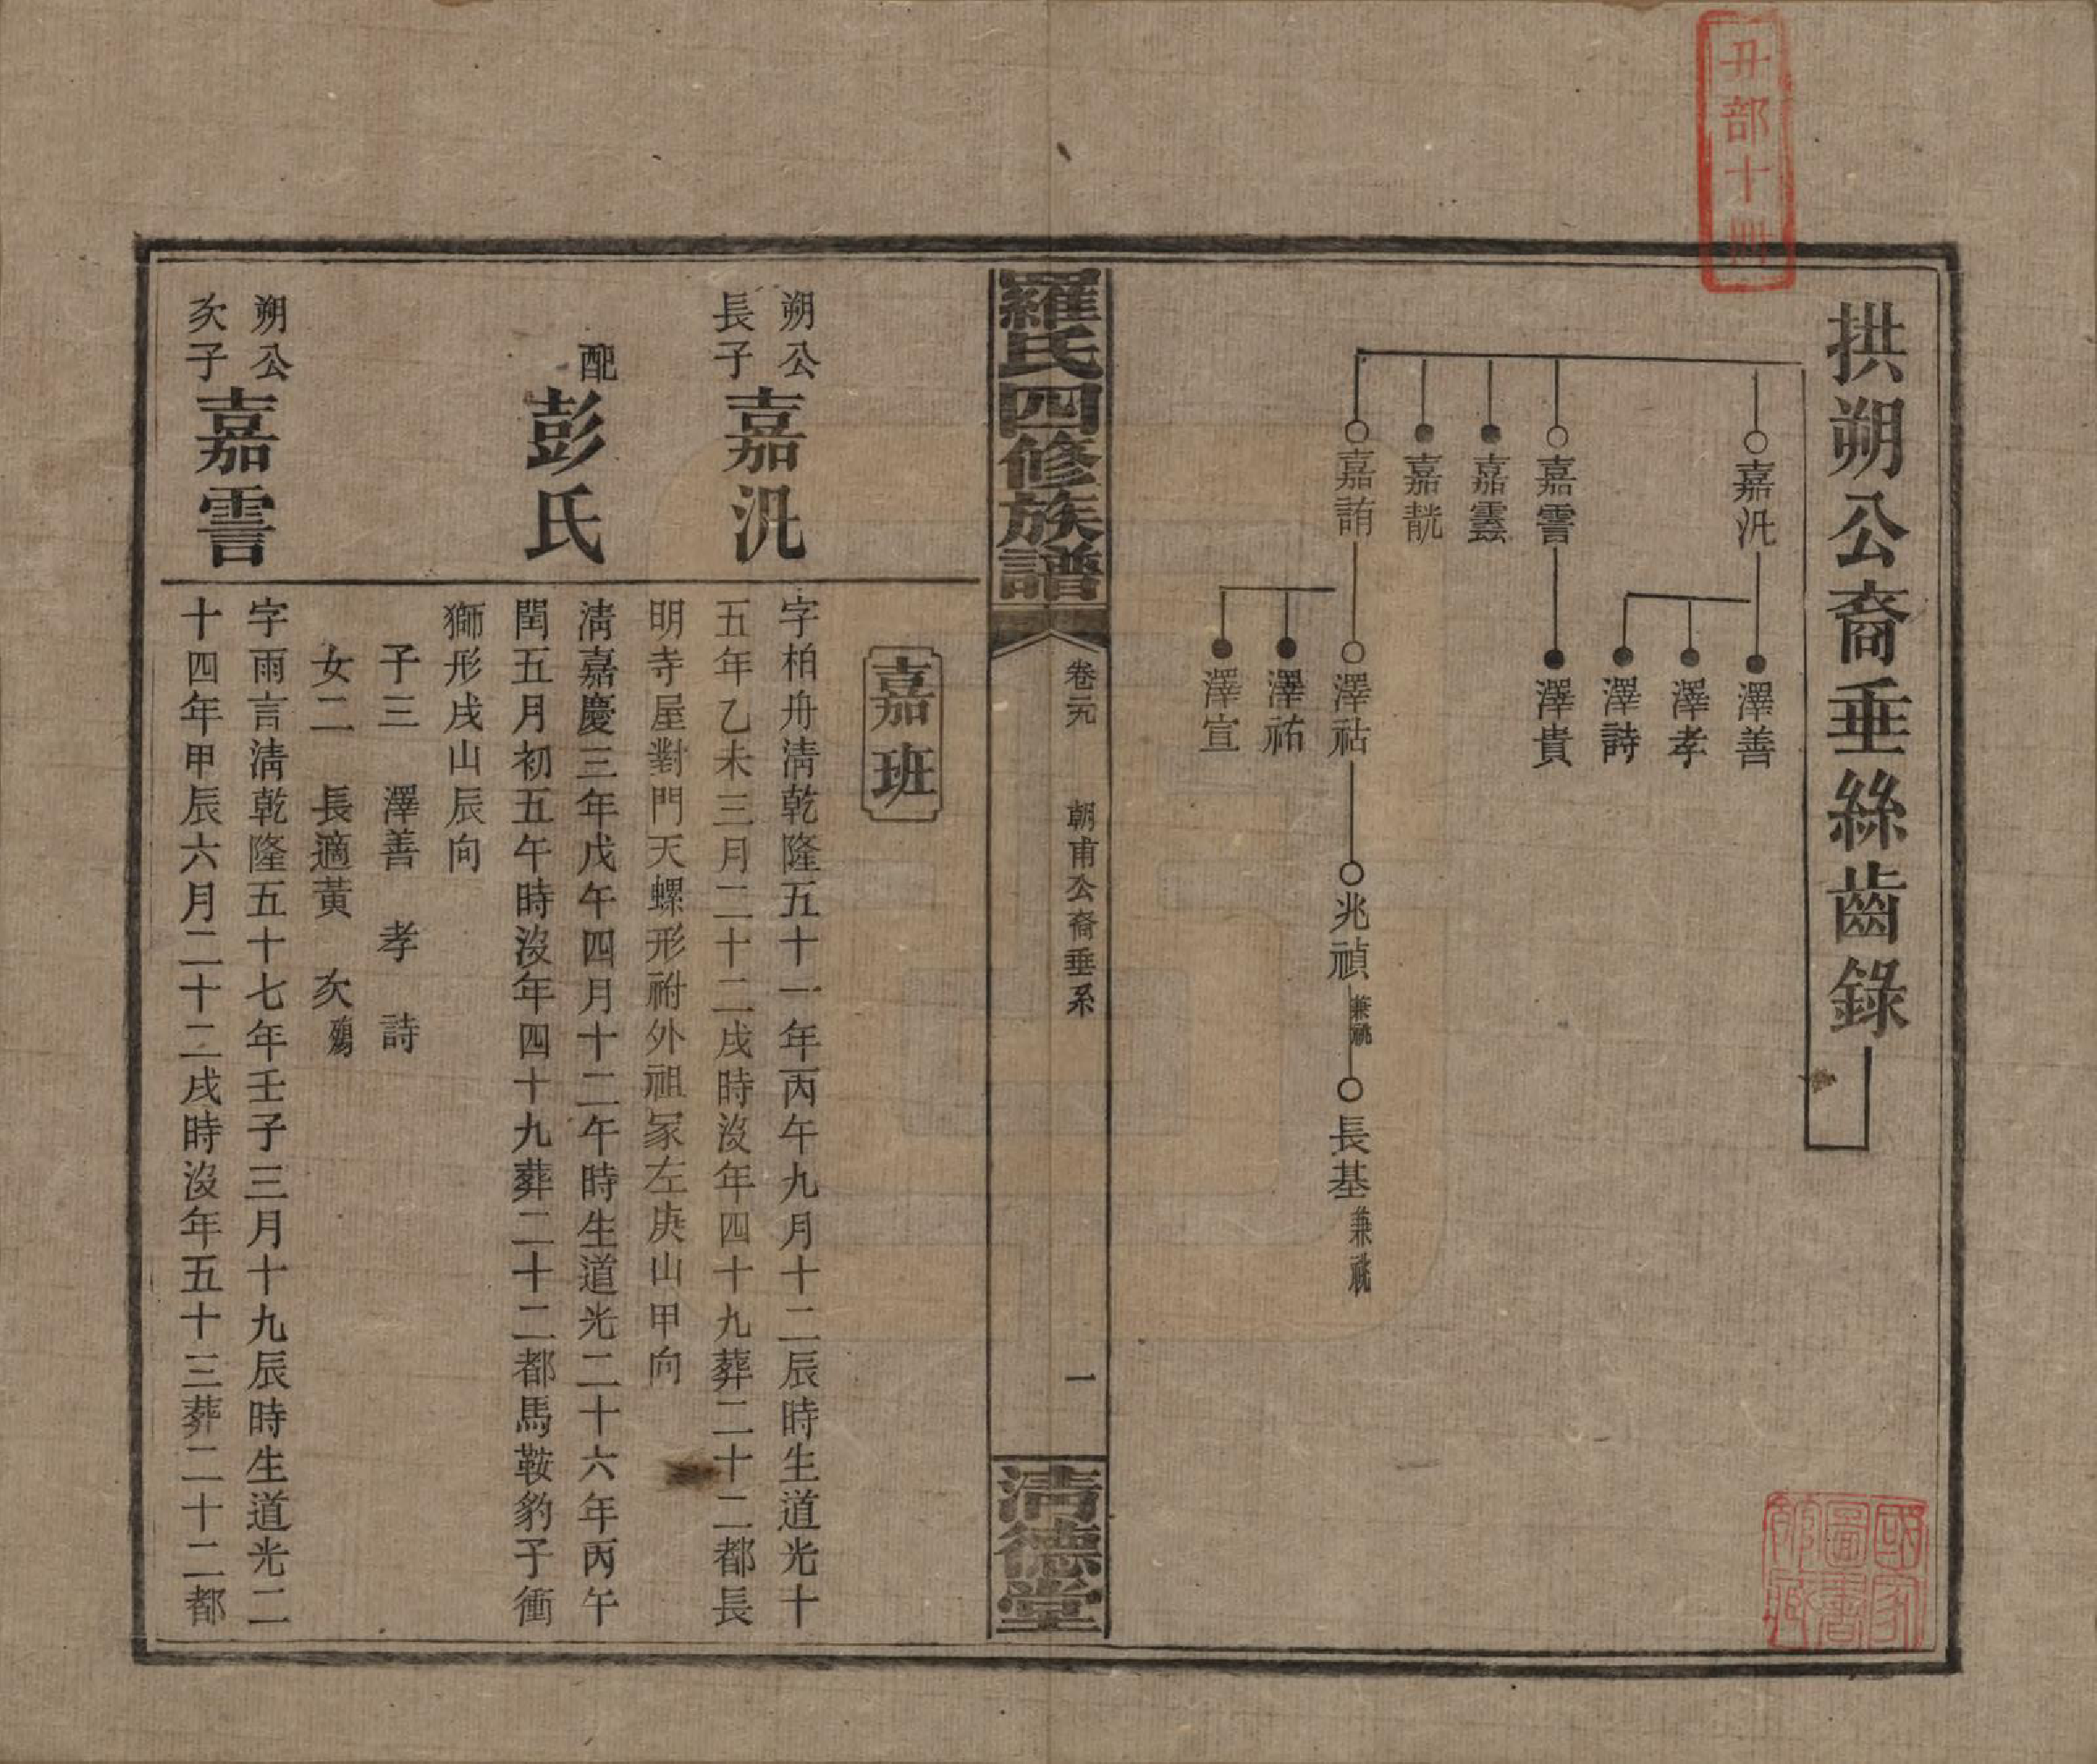 丑部十冊
拱朔公裔垂絲齒錄
嘉汎
嘉䨛
嘉靆
嘉
嘉詴
澤善
澤孝
澤詩
澤貴
澤祜
澤祐
澤宣
兆禎 兼祧
長基 兼祧
羅氏四修族譜
卷元
朝甫公裔垂系
一
清德堂
嘉班
朔公長子 嘉汎
字柏舟清乾隆五十一年丙午九月十二辰時生道光十
五年乙未三月二十二戌時沒年四十九葬二十二都長
明寺屋對門天螺形祔外祖冢左庚山甲向
配 彭氏
清嘉慶三年戊午四月十二午時生道光二十六年丙午
閏五月初五午時沒年四十九葬二十二都馬鞍豹子衝
獅形戌山辰向
子三 澤善 孝 詩
女二 長適黃 次殤
朔公次子 嘉䨛
字雨言清乾隆五十七年壬子三月十九辰時生道光二
十四年甲辰六月二十二戌時沒年五十三葬二十二都
國家圖書館藏